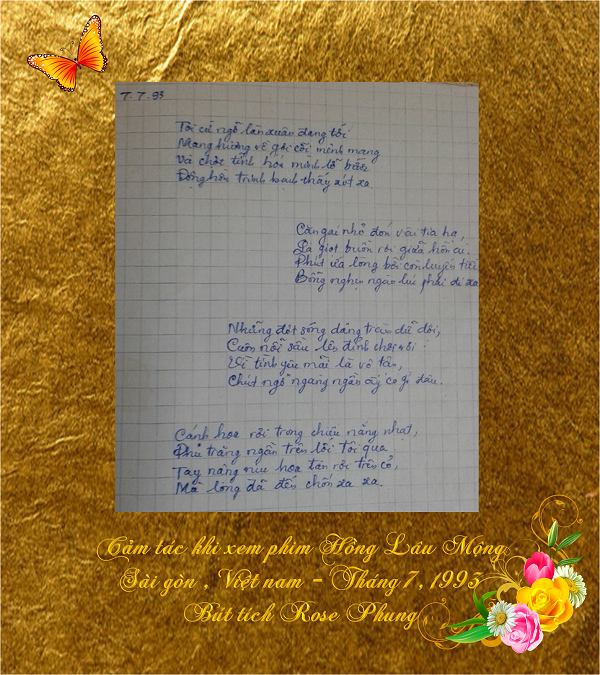 7.7.93
Tôi cứ ngỡ lần xuân đang tới
Mang hương về gội cõi mênh mang
Và chợt tỉnh hoá mình lỡ bước
Động hồn trinh bạch thấy xót xa
Cầm gai nhỏ đón vài tia hạ,
Là giọt buồn rơi giữa hồn ai.
Phút ứa lòng bởi con luyến tiếc
Bỗng nghẹn ngào lúc phải đi xa
Những đợt sóng dâng trào dữ dội,
Cuốn nỗi sầu lên đỉnh chơi vơi
Vì tình yêu mãi là vô tận,
Chút ngỡ ngàng ngần ấy có gì đâu.
Cánh hoa rơi trong chiều nắng nhạt,
Phủ trắng ngần trên lối tôi qua
Tay nâng niu hoa tàn rơi trên cỏ,
Mà lòng đã đến chốn xa xa.
Cảm tác khi xem phim Hồng Lâu Mộng
Sài gòn, Việt nam - Tháng 7, 1993
Bút tích Rose Phung